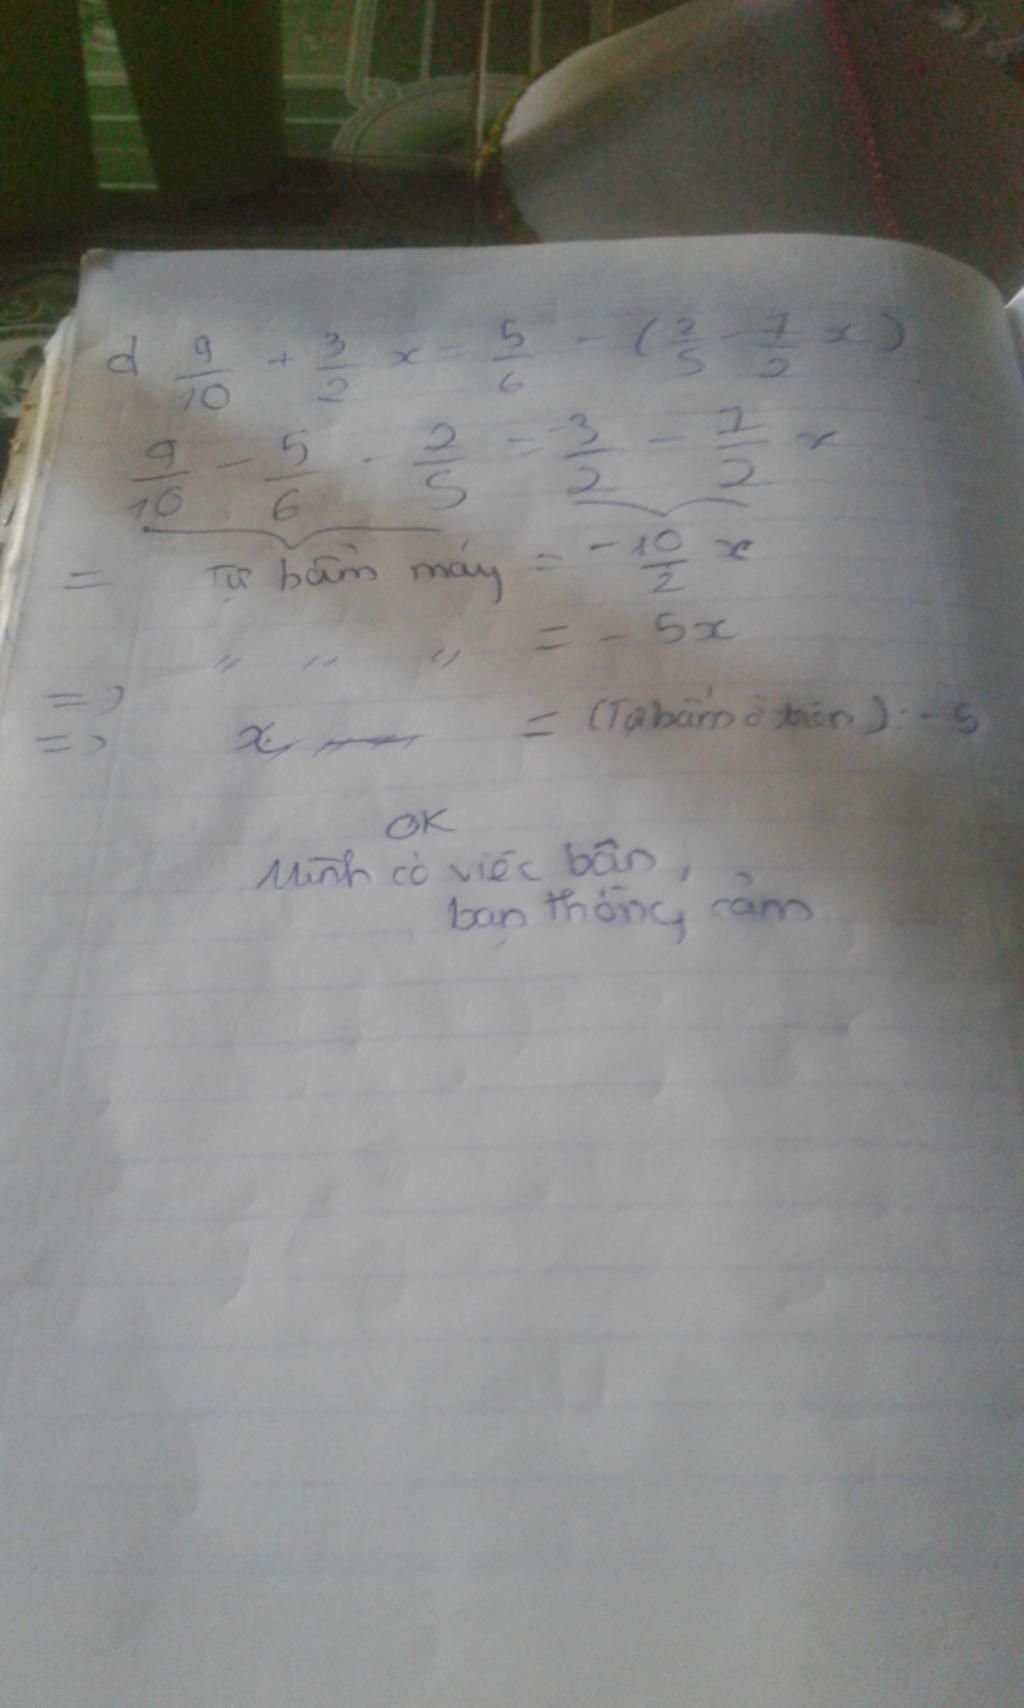 d 9/10 + 3/2 x = 5/6 - (2/5 - 7/2 x)
9/10 - 5/6 - 2/5 = -3/2 - 7/2 x
= Tự bấm máy = -10/2 x
" " " = - 5x
=>
=> x = (Tự bấm ở trên) : - 5
OK
Mình có việc bận,
bạn thông cảm